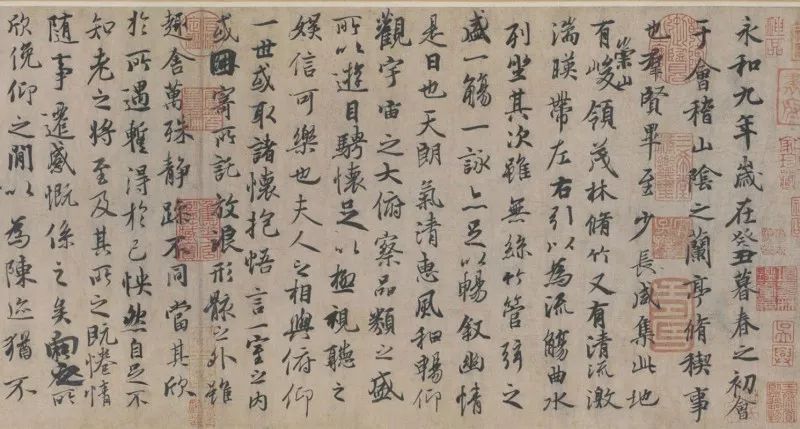 永和九年歲在癸丑暮春之初會
于會稽山陰之蘭亭脩稧事
也羣賢畢至少長咸集此地
有崇山峻領茂林脩竹又有清流激
湍暎帶左右引以為流觴曲水
列坐其次雖無絲竹管弦之
盛一觴一詠亦足以暢叙幽情
是日也天朗氣清惠風和暢仰
觀宇宙之大俯察品類之盛
所以遊目騁懷足以極視聽之
娛信可樂也夫人之相與俯仰
一世或取諸懷抱悟言一室之内
或因寄所託放浪形骸之外雖
趣舍萬殊静躁不同當其欣
於所遇蹔得於己怏然自足不
知老之將至及其所之既惓情
隨事遷感慨係之矣向之所
欣俛仰之閒以為陳迹猶不